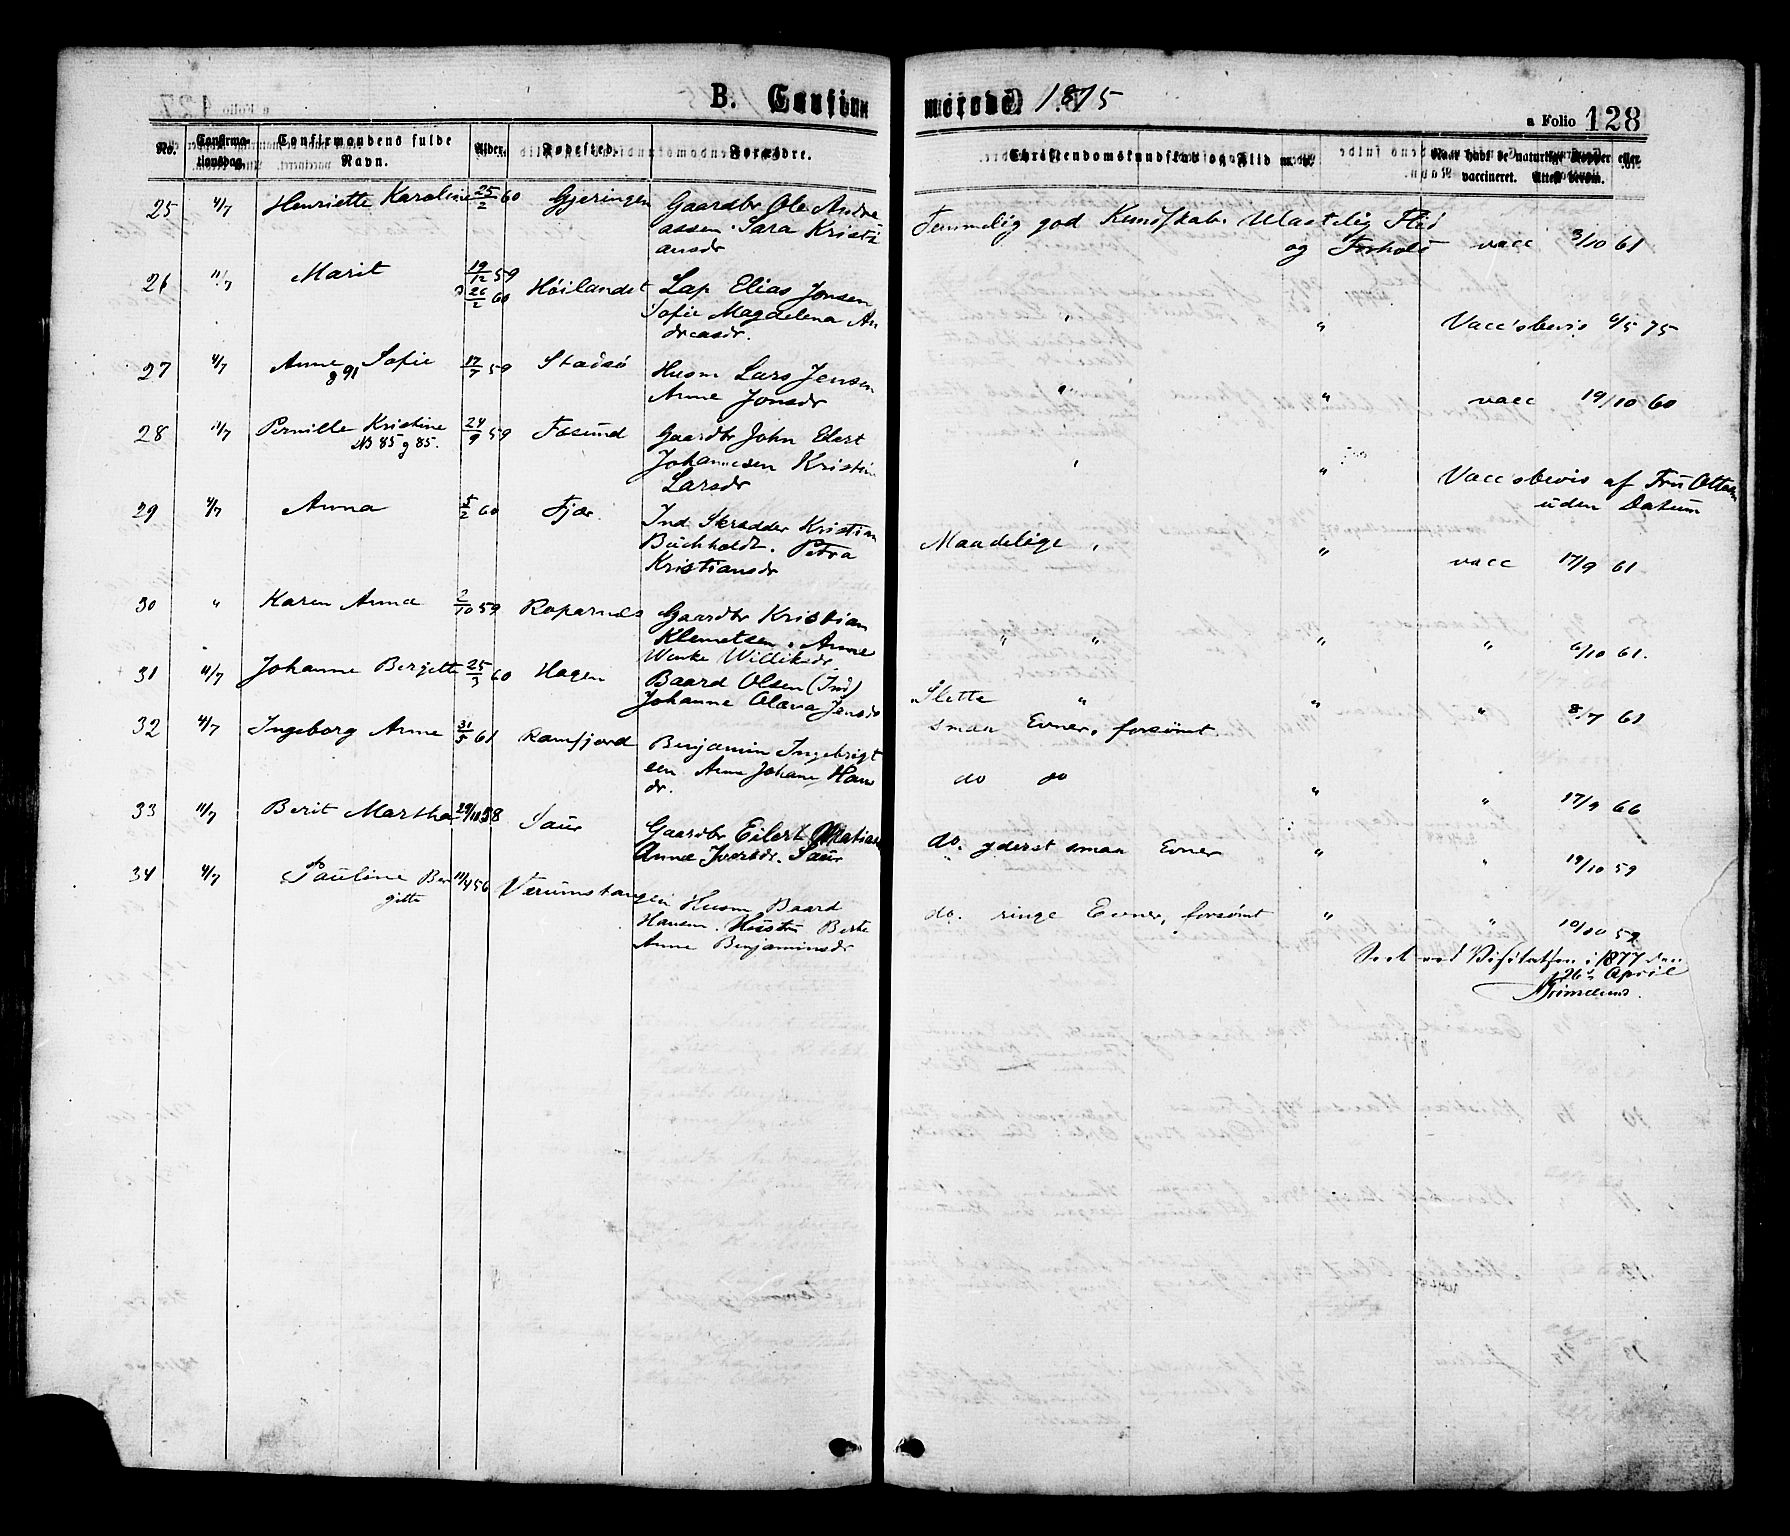 B. Confirmerede. 1875
a Folio 128
No. Confirmationsdag. Confirmandens fulde Navn. Alder. Fødested. Forældre. Christendomskundskab og Flid m. m. Naar havt de naturlige Kopper eller vaccineret. Attest derom.
25 11/7 Henriette Karoline 25/2 60 Gjeringen Gaardbr Ole Andre
assen. Sara Kristi
ansdr
Temmelig god Kundskab. Ulastelig Flid
og Forhold vacc 3/10 61
26 11/7 Marit 19/12 59
26/2 60 Høilandet Lap Elias Jonsen
Sofie Magdelena An
dreasdr.
" " Vacc'sbevis 6/5 75
27 11/7 Anne Sofie 17/7 59 Stadsø Husm Lars Jensen
g 91
Anne Jonsdr
" " vacc 19/10 60
28 11/7 Pernille Kristine 24/9 59 Fosund Gaardbr John Elert
NB 85 g 85.
Johannesen Kristin
Larsdr
" " Vacc'sbevis af Fru Ottesen
uden Datum
29 11/7 Anna 5/2 60 Fjær Ind. Skrædder Kristian
Buchholdt. Petra
Kristiansdr
Maadelige " " vacc 17/9 61
30 " Karen Anna 2/10 59 Roparnes Gaardbr Kristian
Klemetsen. Anne
Wenke Williksdr
" " " " 6/10 61.
31 11/7 Johanne Bergitte 25/3 60 Hagen Baard Olsen (Ind)
Johanne Olava Jensdr
Slette " " " 8/7 61
32 11/7 Ingeborg Anne 31/5 61 Ramfjord Benjamin Ingebrigt
sen Anne Johanne Hans
dr.
smaa Evner, forsømt
do do " " 17/9 66
33 11/7 Berit Martha 29/10 58 Saur Gaardbr Eilert Mathias
Anna Iversdr. Saur
do. yderst smaa Evner " " 19/10 59
34 11/7 Pauline Ber
gitte
11/4 56 Verumstangen Husm Baard
Hansen. Hustru Berte
Anne Benjaminsdr
do. ringe Evner, forsømt " " 10/10 59
Seet ved Visitatsen i 1877 den
26de April